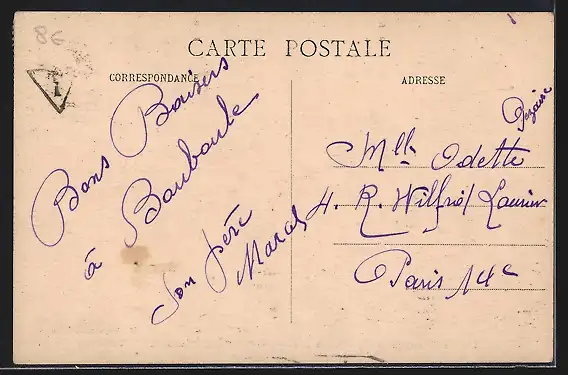 8€
CARTE POSTALE
CORRESPONDANCE
ADRESSE
T
Bons Baisers
à Bouboule
Son père
Marcel
Mlle Odette
4. R. Wilfrid Laurier
Paris 14e